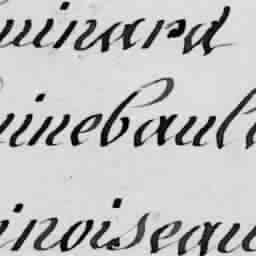 uinard
uinebaul
inoiseau